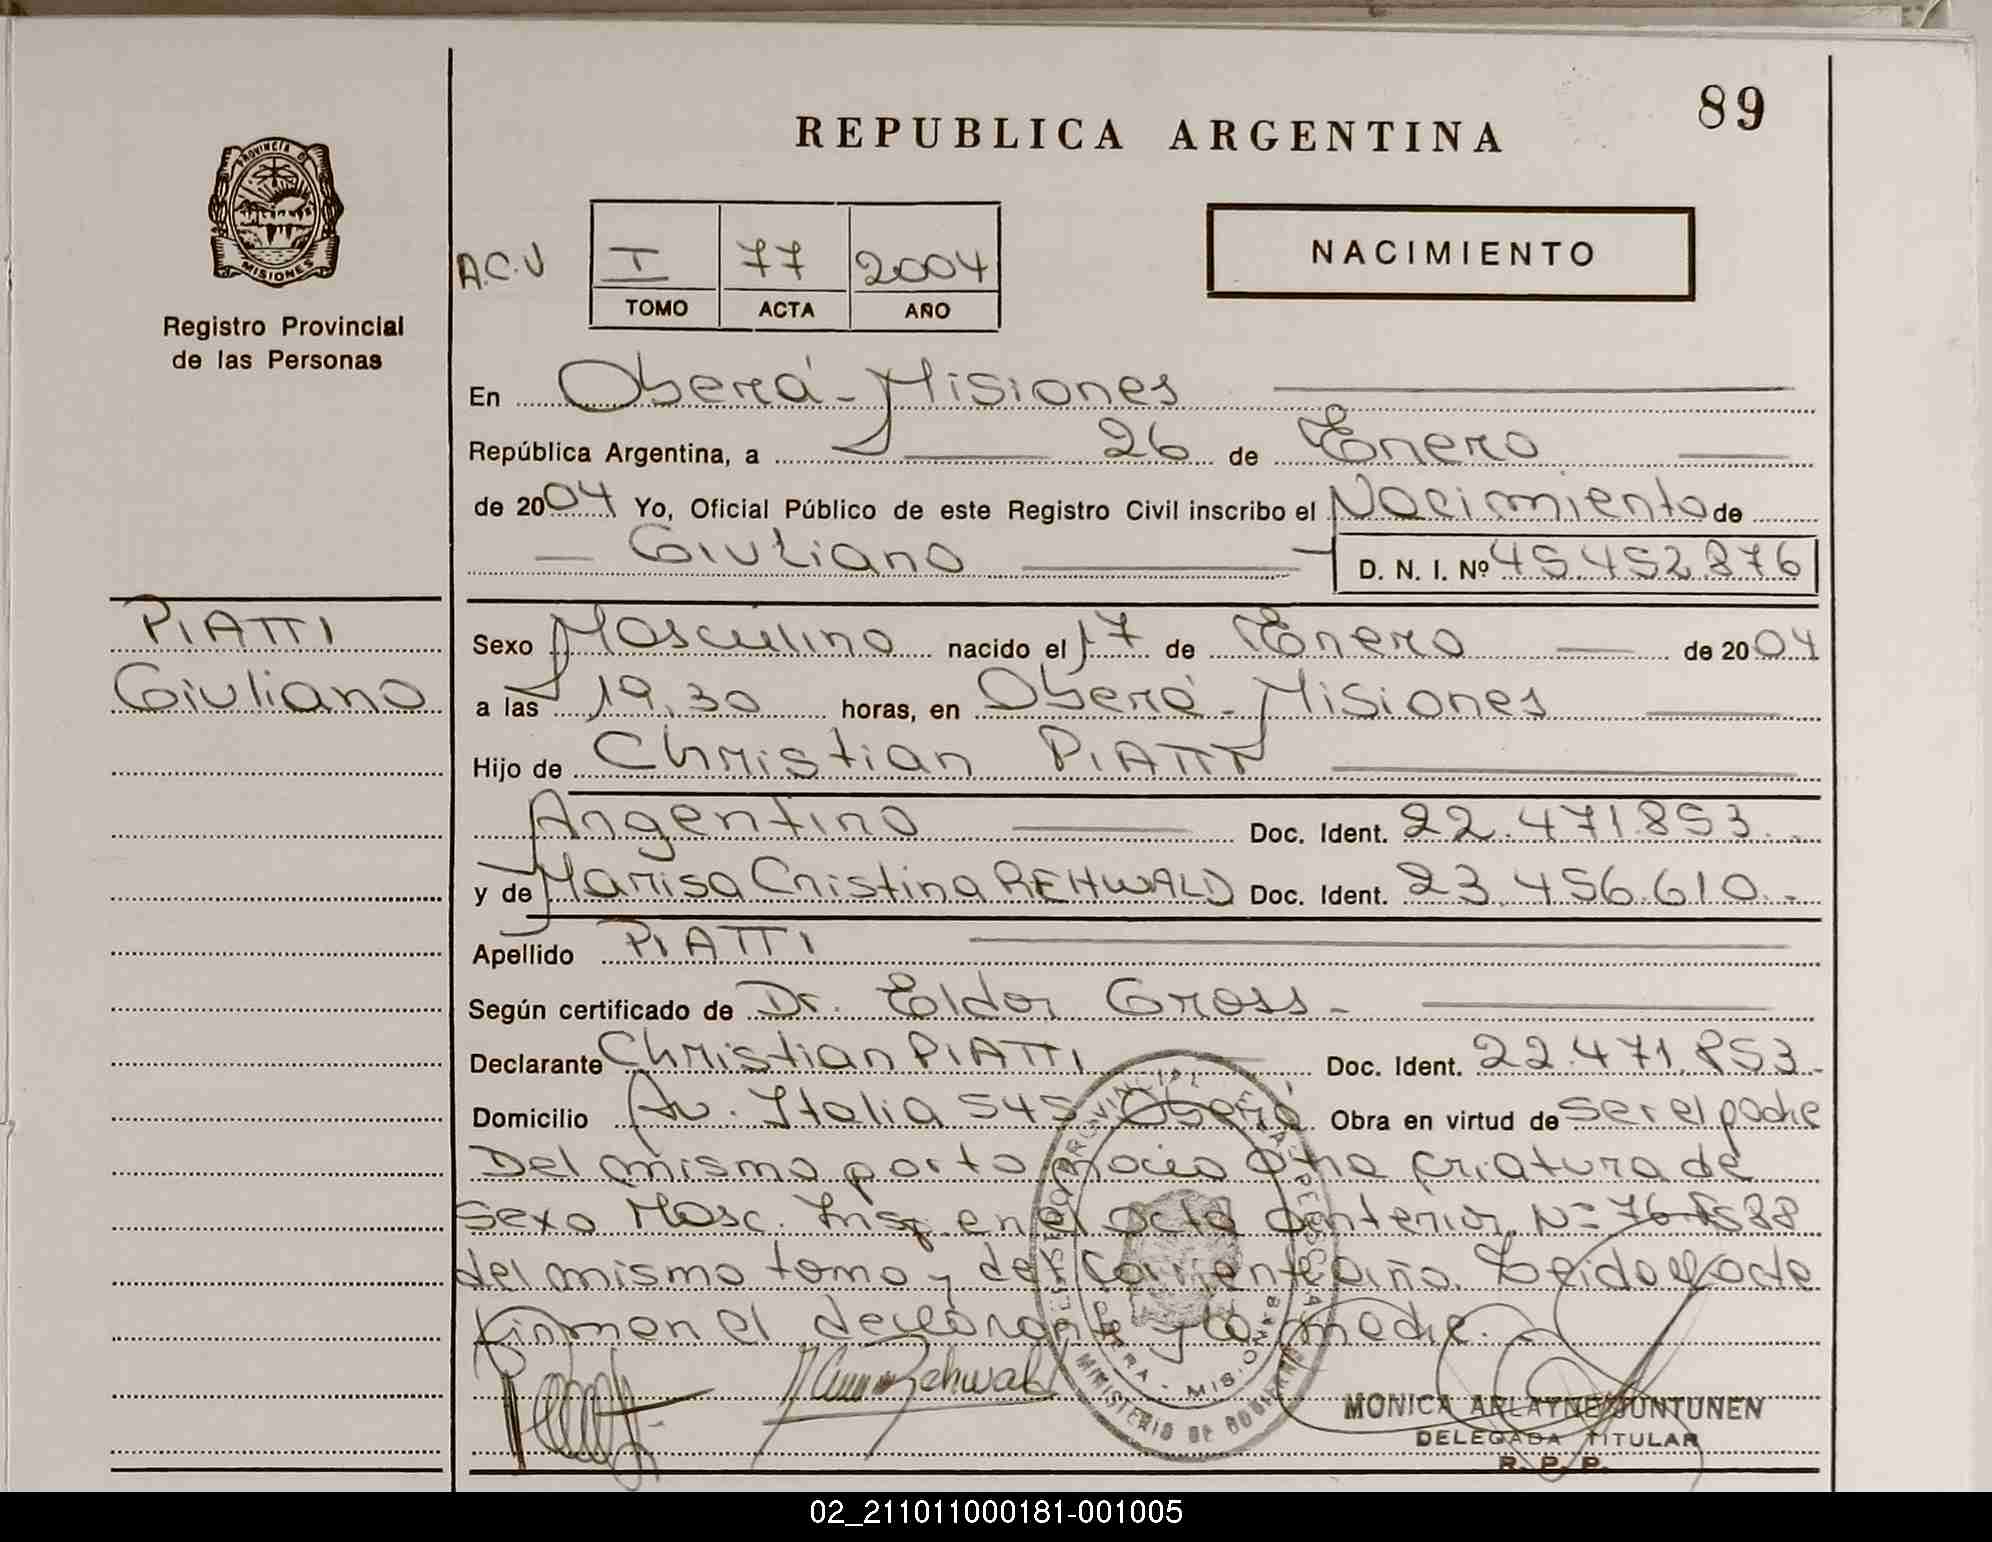 89
REPUBLICA ARGENTINA
PROVINCIA D
MISIONES
Registro Provincial
de las Personas
NACIMIENTO
A.C.V
I 77 2004
TOMO ACTA AÑO
En Oberá - Misiones
República Argentina, a 26 de Enero
de 2004 Yo, Oficial Público de este Registro Civil inscribo el Nacimiento de
Giuliano D. N. I. Nº 45.452.876
PIATTI
Giuliano
Sexo Masculino nacido el 17 de Enero de 2004
a las 19,30 horas, en Oberá - Misiones
Hijo de Christian PIATTI
Argentino Doc. Ident. 22.471.853.-
y de Marisa Cristina REHWALD Doc. Ident. 23.456.610.-
Apellido PIATTI
Según certificado de Dr. Eldor Gross -
Declarante Christian PIATTI Doc. Ident. 22.471.853-
Domicilio Av. Italia 545 Oberá Obra en virtud de ser el padre
Del mismo parto nació otra criatura de
sexo Masc. Insc. en el acta anterior Nº 76 88
del mismo tomo y del corriente año. Leido el acta
firman el declarante y la madre.
Rehwald
MONICA ARLAYNE JUNTUNEN
DELEGADA TITULAR
R. P. P.
MINISTERIO DE GOBIERNO
02_211011000181-001005